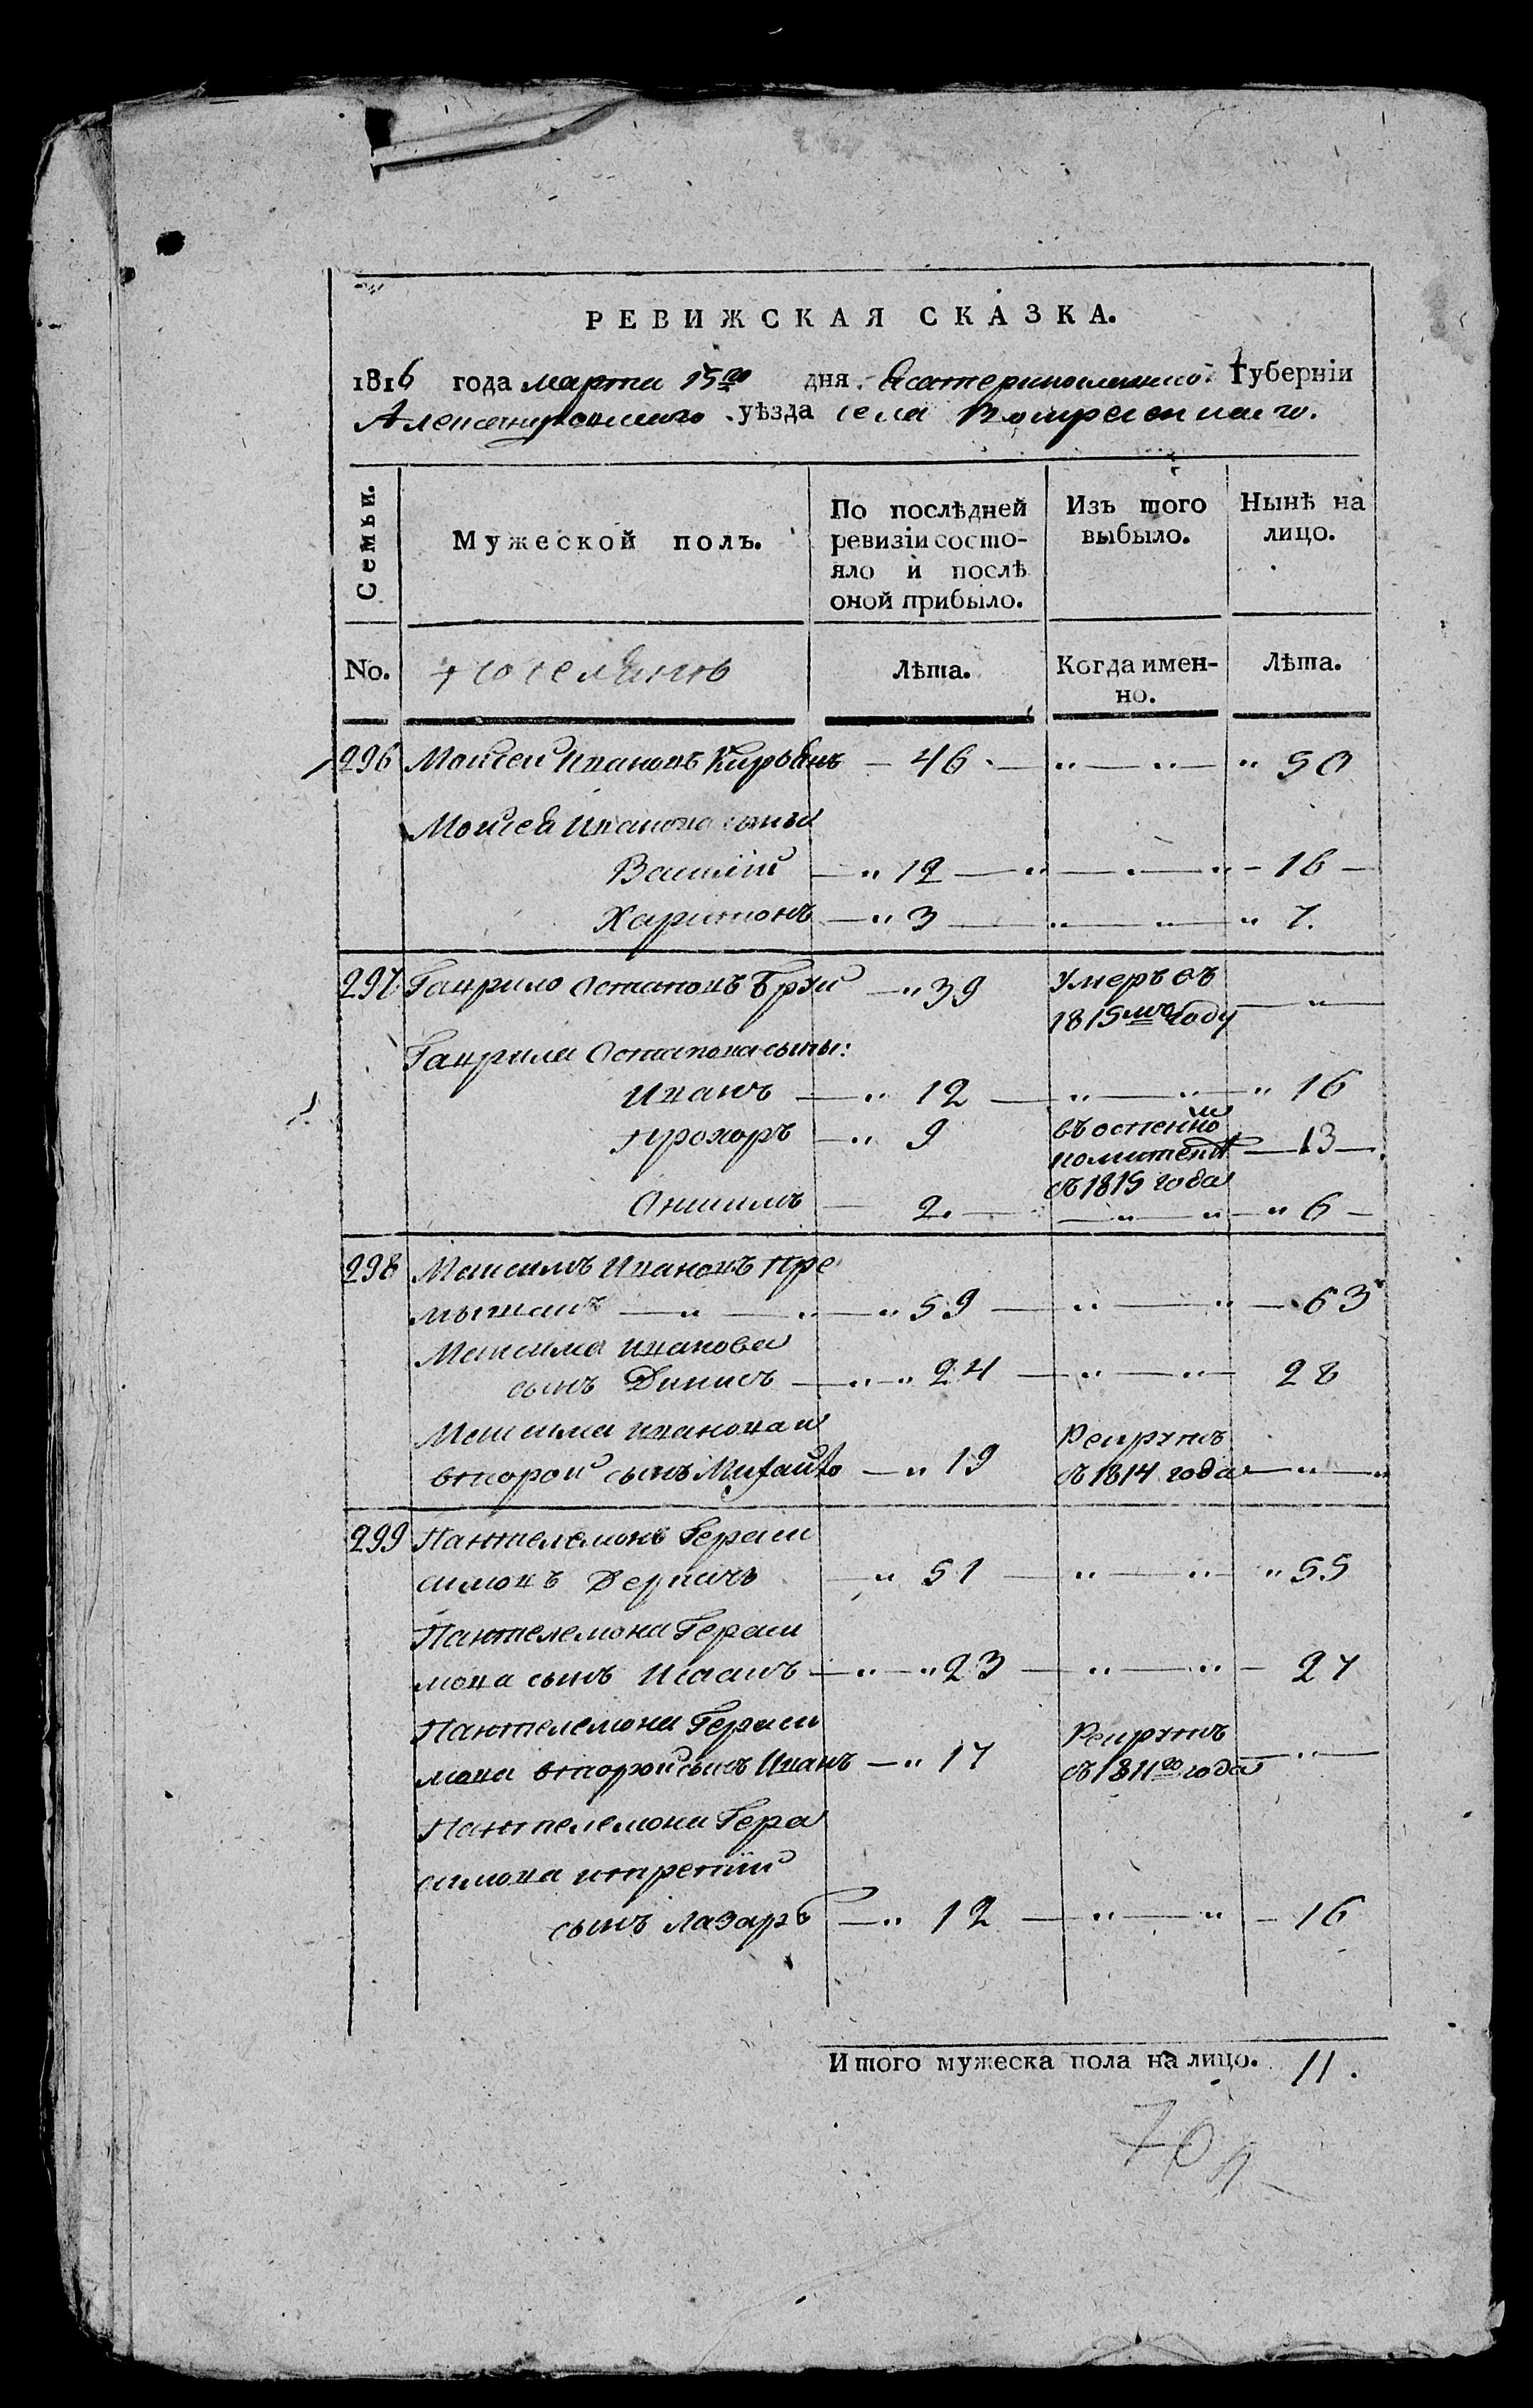 РЕВИЖСКАЯ СКАЗКА.
1816 года марта 15го дня Екатеринославской Губерніи
Александровскаго уѣзда села Воскресенскаго.
Семьи.
Мужеской полъ.
По послѣдней ревизіи состо-
яло и послѣ
оной прибыло.
Изъ того
выбыло.
Нынѣ на
лицо.
No.
поселянъ
Лѣта.
Когда имен-
но.
Лѣта.
296 Моисей Ивановъ Кирьянъ — 46 — " — " — " 50
Моисея Иванова сыны
Василій — " 12 — " — " — " — 16 —
Харитонъ — " 3 — " — " — " 7.
297 Гаврило Остаповъ Бруй — " 39 Умеръ въ
1815мъ году — " —
Гаврила Остапова сыны:
Иванъ — " 12 — " — " — " 16
Прохоръ — " 9 въ
комитетѣ — 13 —
съ 1815 года
Онисимъ — 2. — " — " — " 6 —
298 Максимъ Ивановъ Кре
— " — " — " 59 — " — " — 63
Максима Иванова
сынъ Динисъ — " — " 24 — " — " — 28
Максима Иванова
второй сынъ Михайло — " 19 Рекрутъ
съ 1814 года — " — "
299 Пантелемонъ Гераси
симовъ Деркачъ — " 51 — " — " — " 55
Пантелемона Гераси
мова сынъ Исаакъ — " — " 23 — " — " — 27
Пантелемона Гераси
мова второй сынъ Иванъ — " 17 Рекрутъ
съ 1811го года — " —
Пантелемона Гера
симова третій
сынъ Лазарь — " 12 — " — " — 16
Итого мужеска пола на лицо. 11.